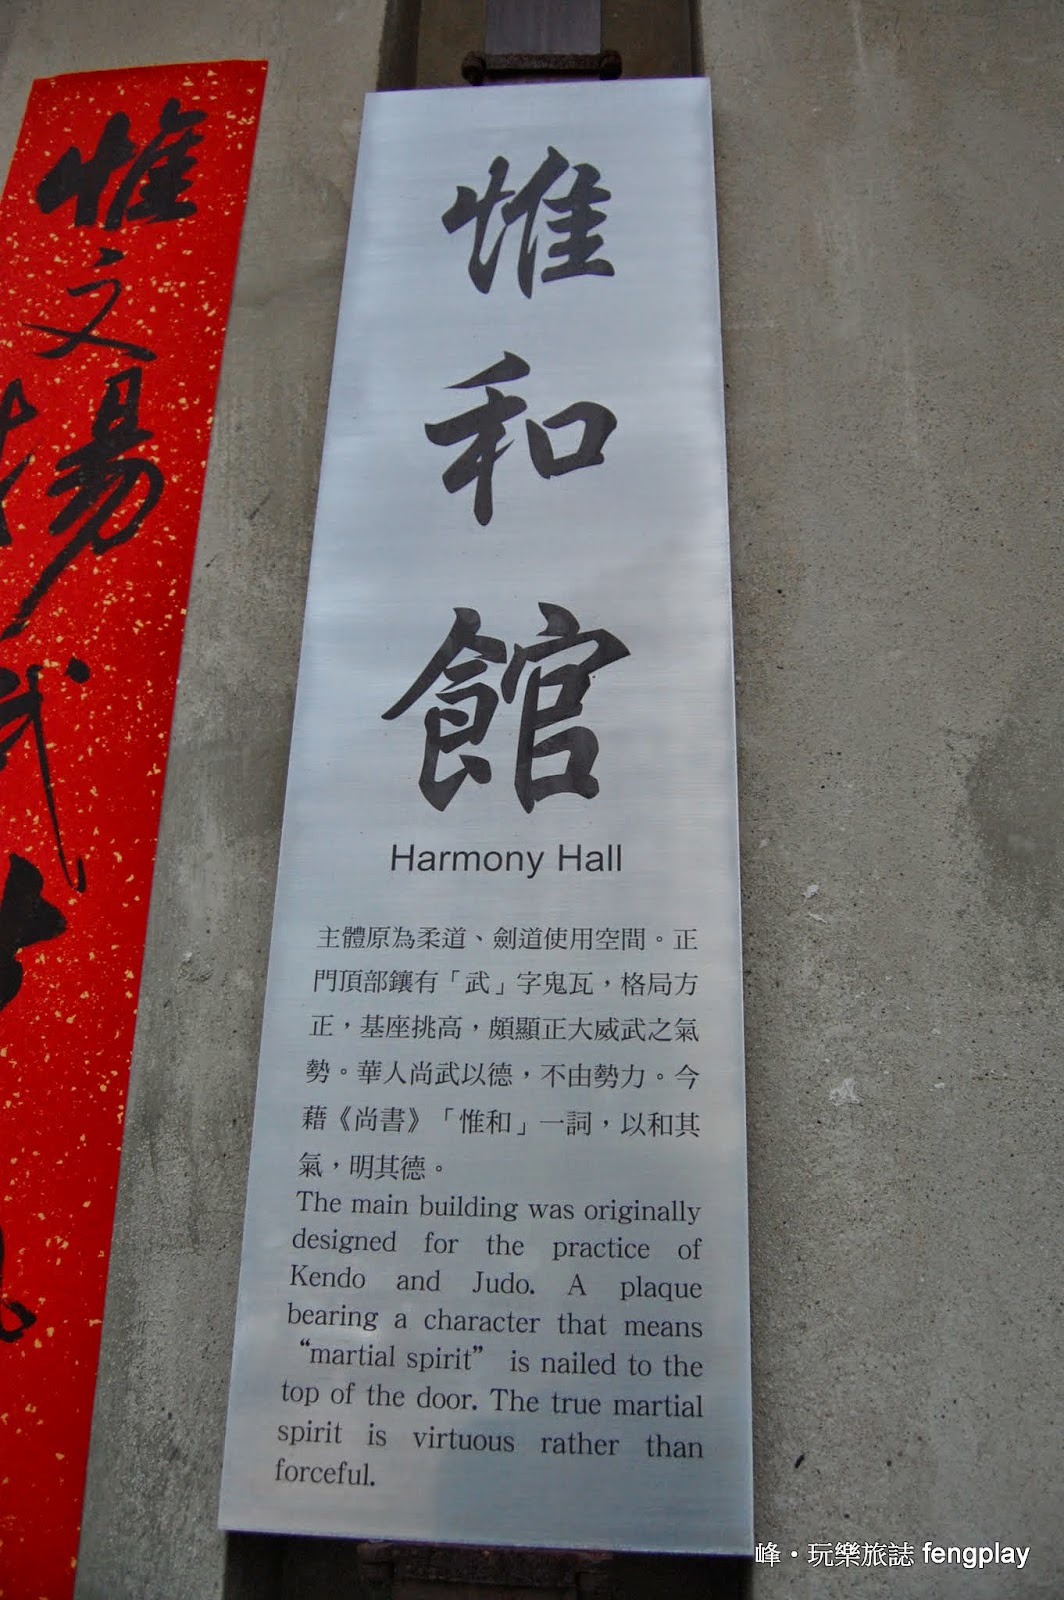 惟文揚武
惟和館
Harmony Hall
主體原為柔道、劍道使用空間。正
門頂部鑲有「武」字鬼瓦，格局方
正，基座挑高，頗顯正大威武之氣
勢。華人尚武以德，不由勢力。今
藉《尚書》「惟和」一詞，以和其
氣，明其德。
The main building was originally
designed for the practice of
Kendo and Judo. A plaque
bearing a character that means
“martial spirit” is nailed to the
top of the door. The true martial
spirit is virtuous rather than
forceful.
峰・玩樂旅誌 fengplay